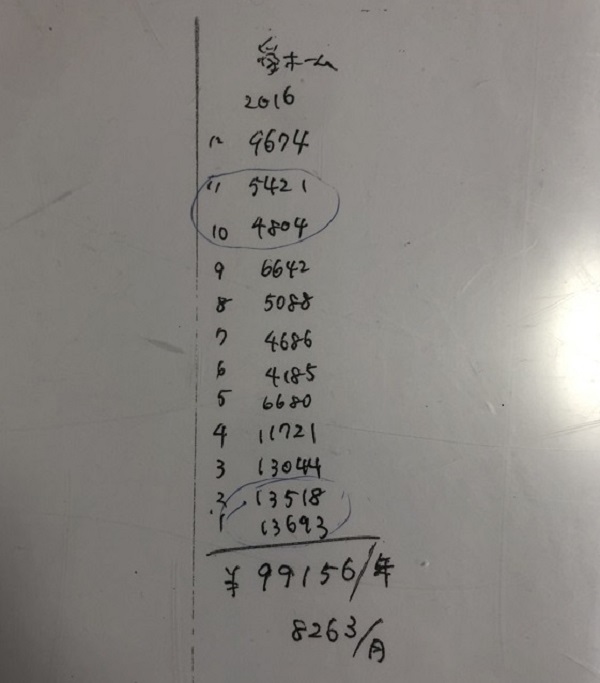 ホーム
2016
12 9674
11 5421
10 4804
9 6642
8 5088
7 4686
6 4185
5 6680
4 11721
3 13044
2 13518
1 13693
¥99156/年
8263/月